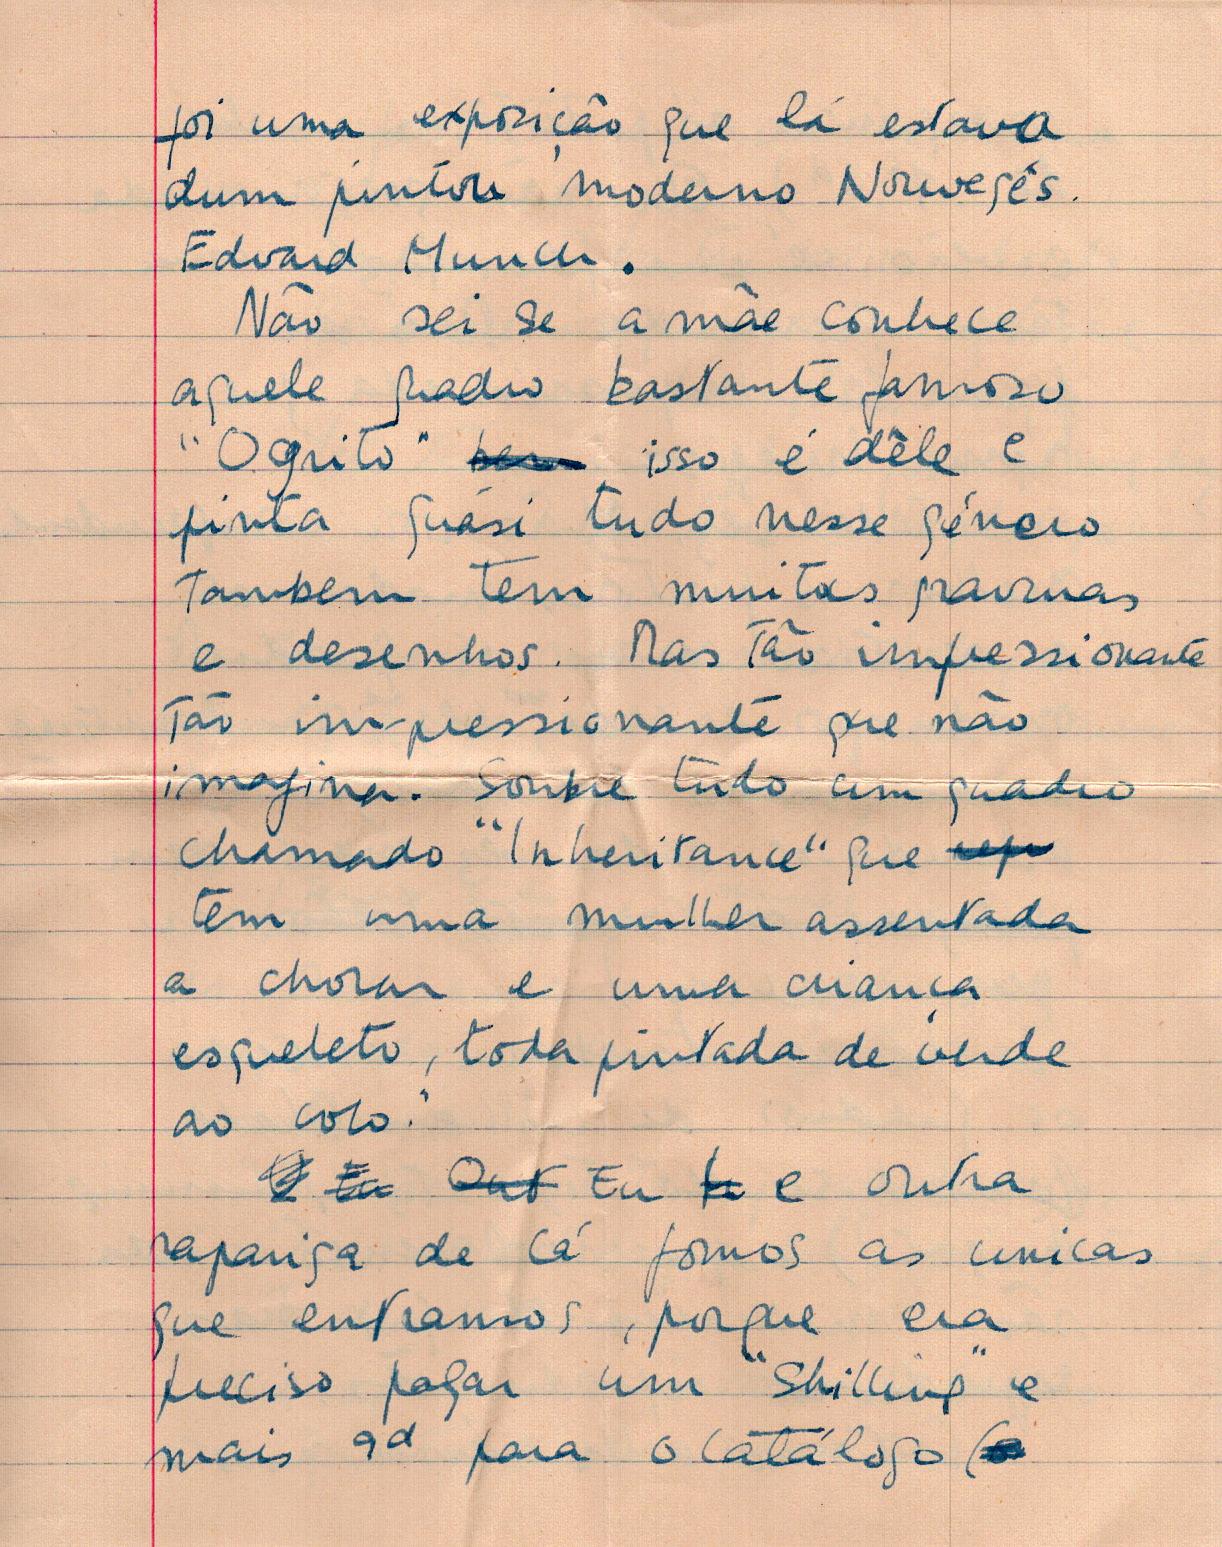 foi uma exposição que lá estava
dum pintor moderno Norwegês.
Edvard Munch.
Não sei se a mãe conhece
aquele quadro bastante famoso
"O grito" isso é dêle e
pinta quási tudo nesse género
Tambem tem muitas gravuras
e desenhos. Mas Tão impressionante
Tão impressionante que não
imagina. Sobre tudo um quadro
chamado "Inheritance" que
tem uma mulher assentada
a chorar e uma criança
esqueleto, toda pintada de verde
ao colo.
Eu e outra
rapariga de cá fomos as unicas
que entramos, porque era
preciso pagar um "Shilling" e
mais 9d para o catálogo (